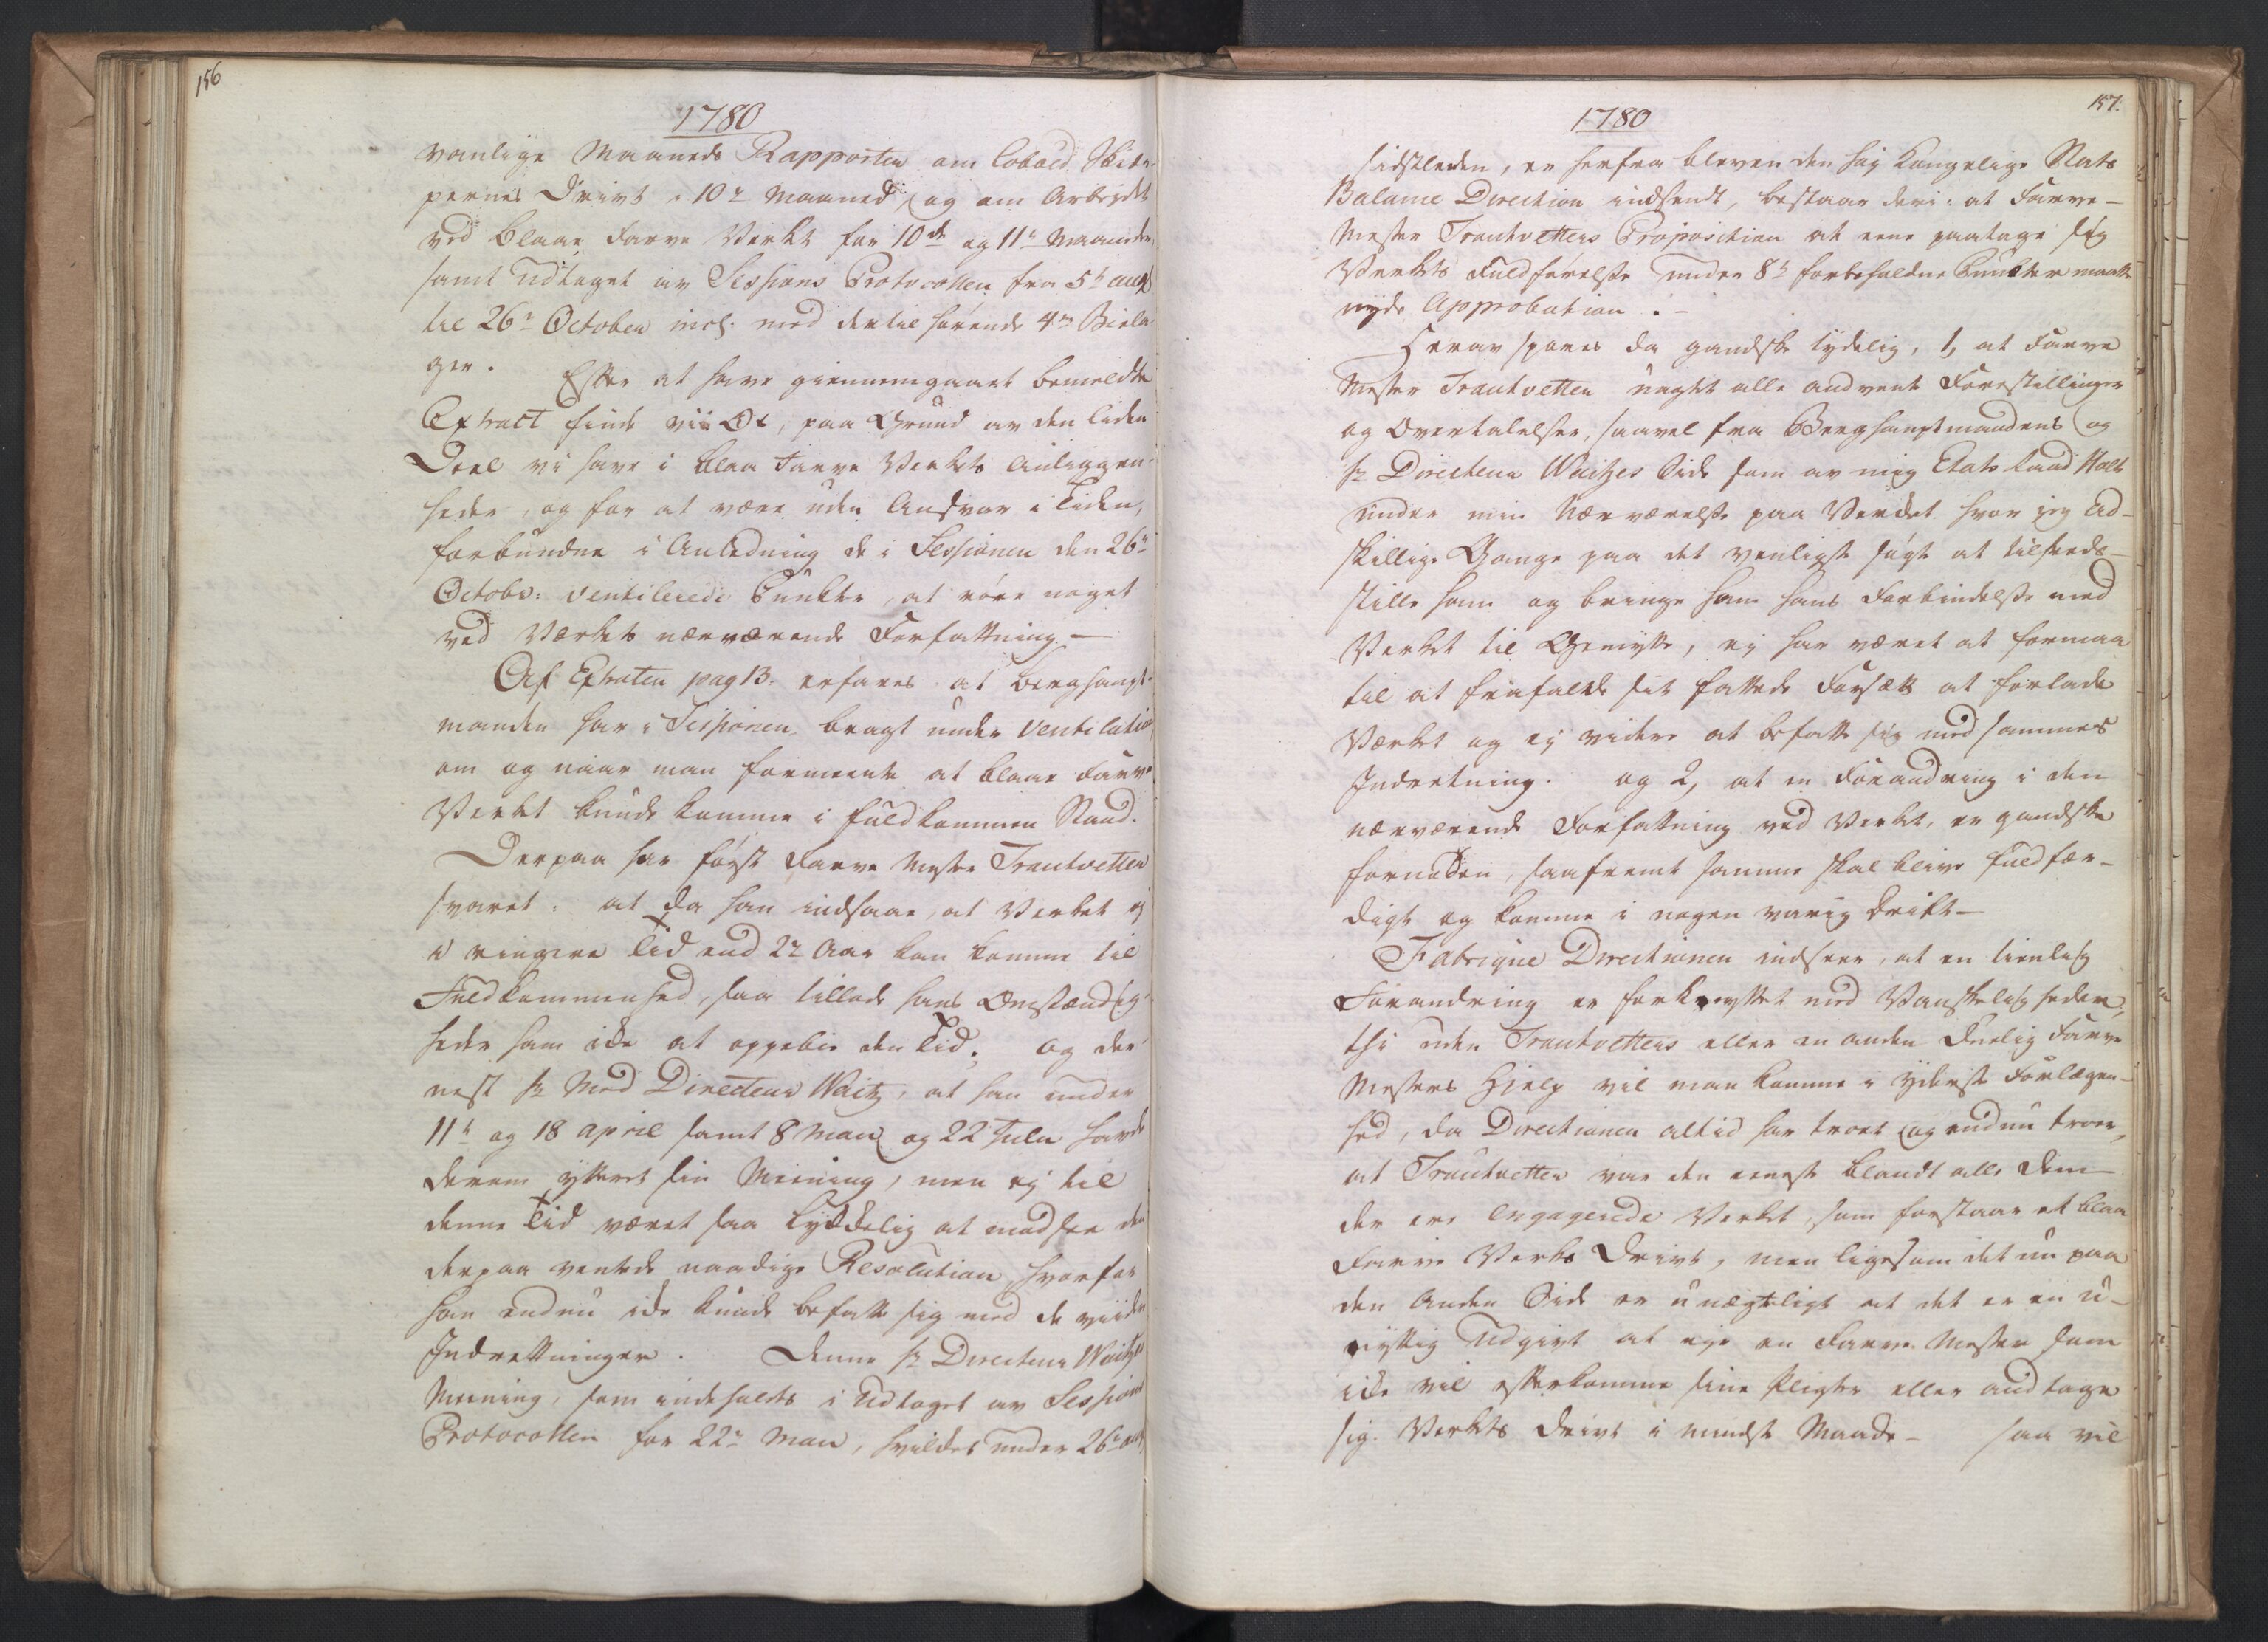 156
1780
vanlige Maaneds Rapporter om Cobold Skier-
pernes Drivt i 10de Maaned, og om Arbeydet
ved Blaae Farve Verket for 10de og 11te Maaneder,
samt Udtoget av Sessions Protocollen fra 5te aug
til 26de October incl. med dertil hørende 4re Biela-
ger. Efter at have giennemgaaet bemeldte
Extract finde vii Os, paa Grund av den liden
Deel vi have i Blaa Farve Verkets Anliggen-
heder, og for at være uden Ansvar i Tiden,
forbundne i Anledning de i Sessionen den 26de
Octobr: ventilerede Punkter, at røre noget
ved Værkets nærværende Forfattning.—
Af Extracten pag 13. erfares at Berghaupt-
manden har i Sessionen bragt under Ventilation,
om og naar man formeente at Blaae Farve
Verket kunde komme i fuldkommen Stand.
Derpaa har først Farve Mester Trautvetter
svaret: at da han indsaae, at Verket ej
i ringere Tid end 2de Aar kan komme til
Fuldkommenhed, saa tillade hans Omstændig-
heder ham icke at oppebie den Tid. og der-
nest Hr Med Directeur Waitz, at han under
11te og 18 april samt 8 Maii og 22 Julii havde
derom yttret sin Meening, men ej til
denne Tid været saa lykkelig at modsee den
derpaa ventede naadige Resolution, hvorfor
han endnu icke kunde befatte sig med de viidere
Indrettninger. Denne Hr Directeur Waitzes
Meening, som indeholdes i Udtoget av Sessions
Protocollen for 22de Maii, hvilket under 26de aug
157.
1780
sidstleden, er herfra bleven den høj Kongelige Stats
Balance Direction indsendt, bestaar deri: at Farve-
Mester Trautvetters Proposition at eene paatage sig
Verkets Fuldførelse under 8te forbeholdne Punkter maatte
nyde Approbation.—
Herav spores da gandske tydelig, 1, at Farve
Mester Trautvetter uagtet alle andvent Forestillinger
og Overtalelser, saavel fra Berghauptmandens og
Hr Directeur Waitzes Side som av mig Etats Raad Holt
under min Nærværelse paa Verket hvor jeg ad-
skillige Gange paa det venligste søgt at tilfreds-
stille ham og bringe ham hans Forbindelse med
Verket til Gemytte, ej har været at formaa
til at frafalde sit fattede Forsætt at forlade
Værket og ej videre at befatte sig med sammes
Indretning. og 2, at en Forandring i den
nærværende Forfattning ved Verket, er gandske
fornøden, saafremt samme skal blive fuldfær-
digt og komme i nogen varig Drift—
Fabrique Directionen indseer, at en tienlig
Forandring er forknyttet med Vanskeligheder,
thi uden Trautvetters eller en anden duelig Farve
Mesters Hielp vil man komme i yderste Forlægen-
hed, da Directionen altid har troet og endnu troer,
at Trautvetter var den eeneste blandt alle dem
der ere engagerede Verket, som forstaar et Blaa
Farve Verks Drivt, men ligesom det nu paa
den Anden Side er unægteligt at det er en u-
nyttig Udgivt at eje en Farve Mester som
icke vil efterkomme sine Pligter eller andtage
sig Verkets Drivt i mindste Maade— saa vil